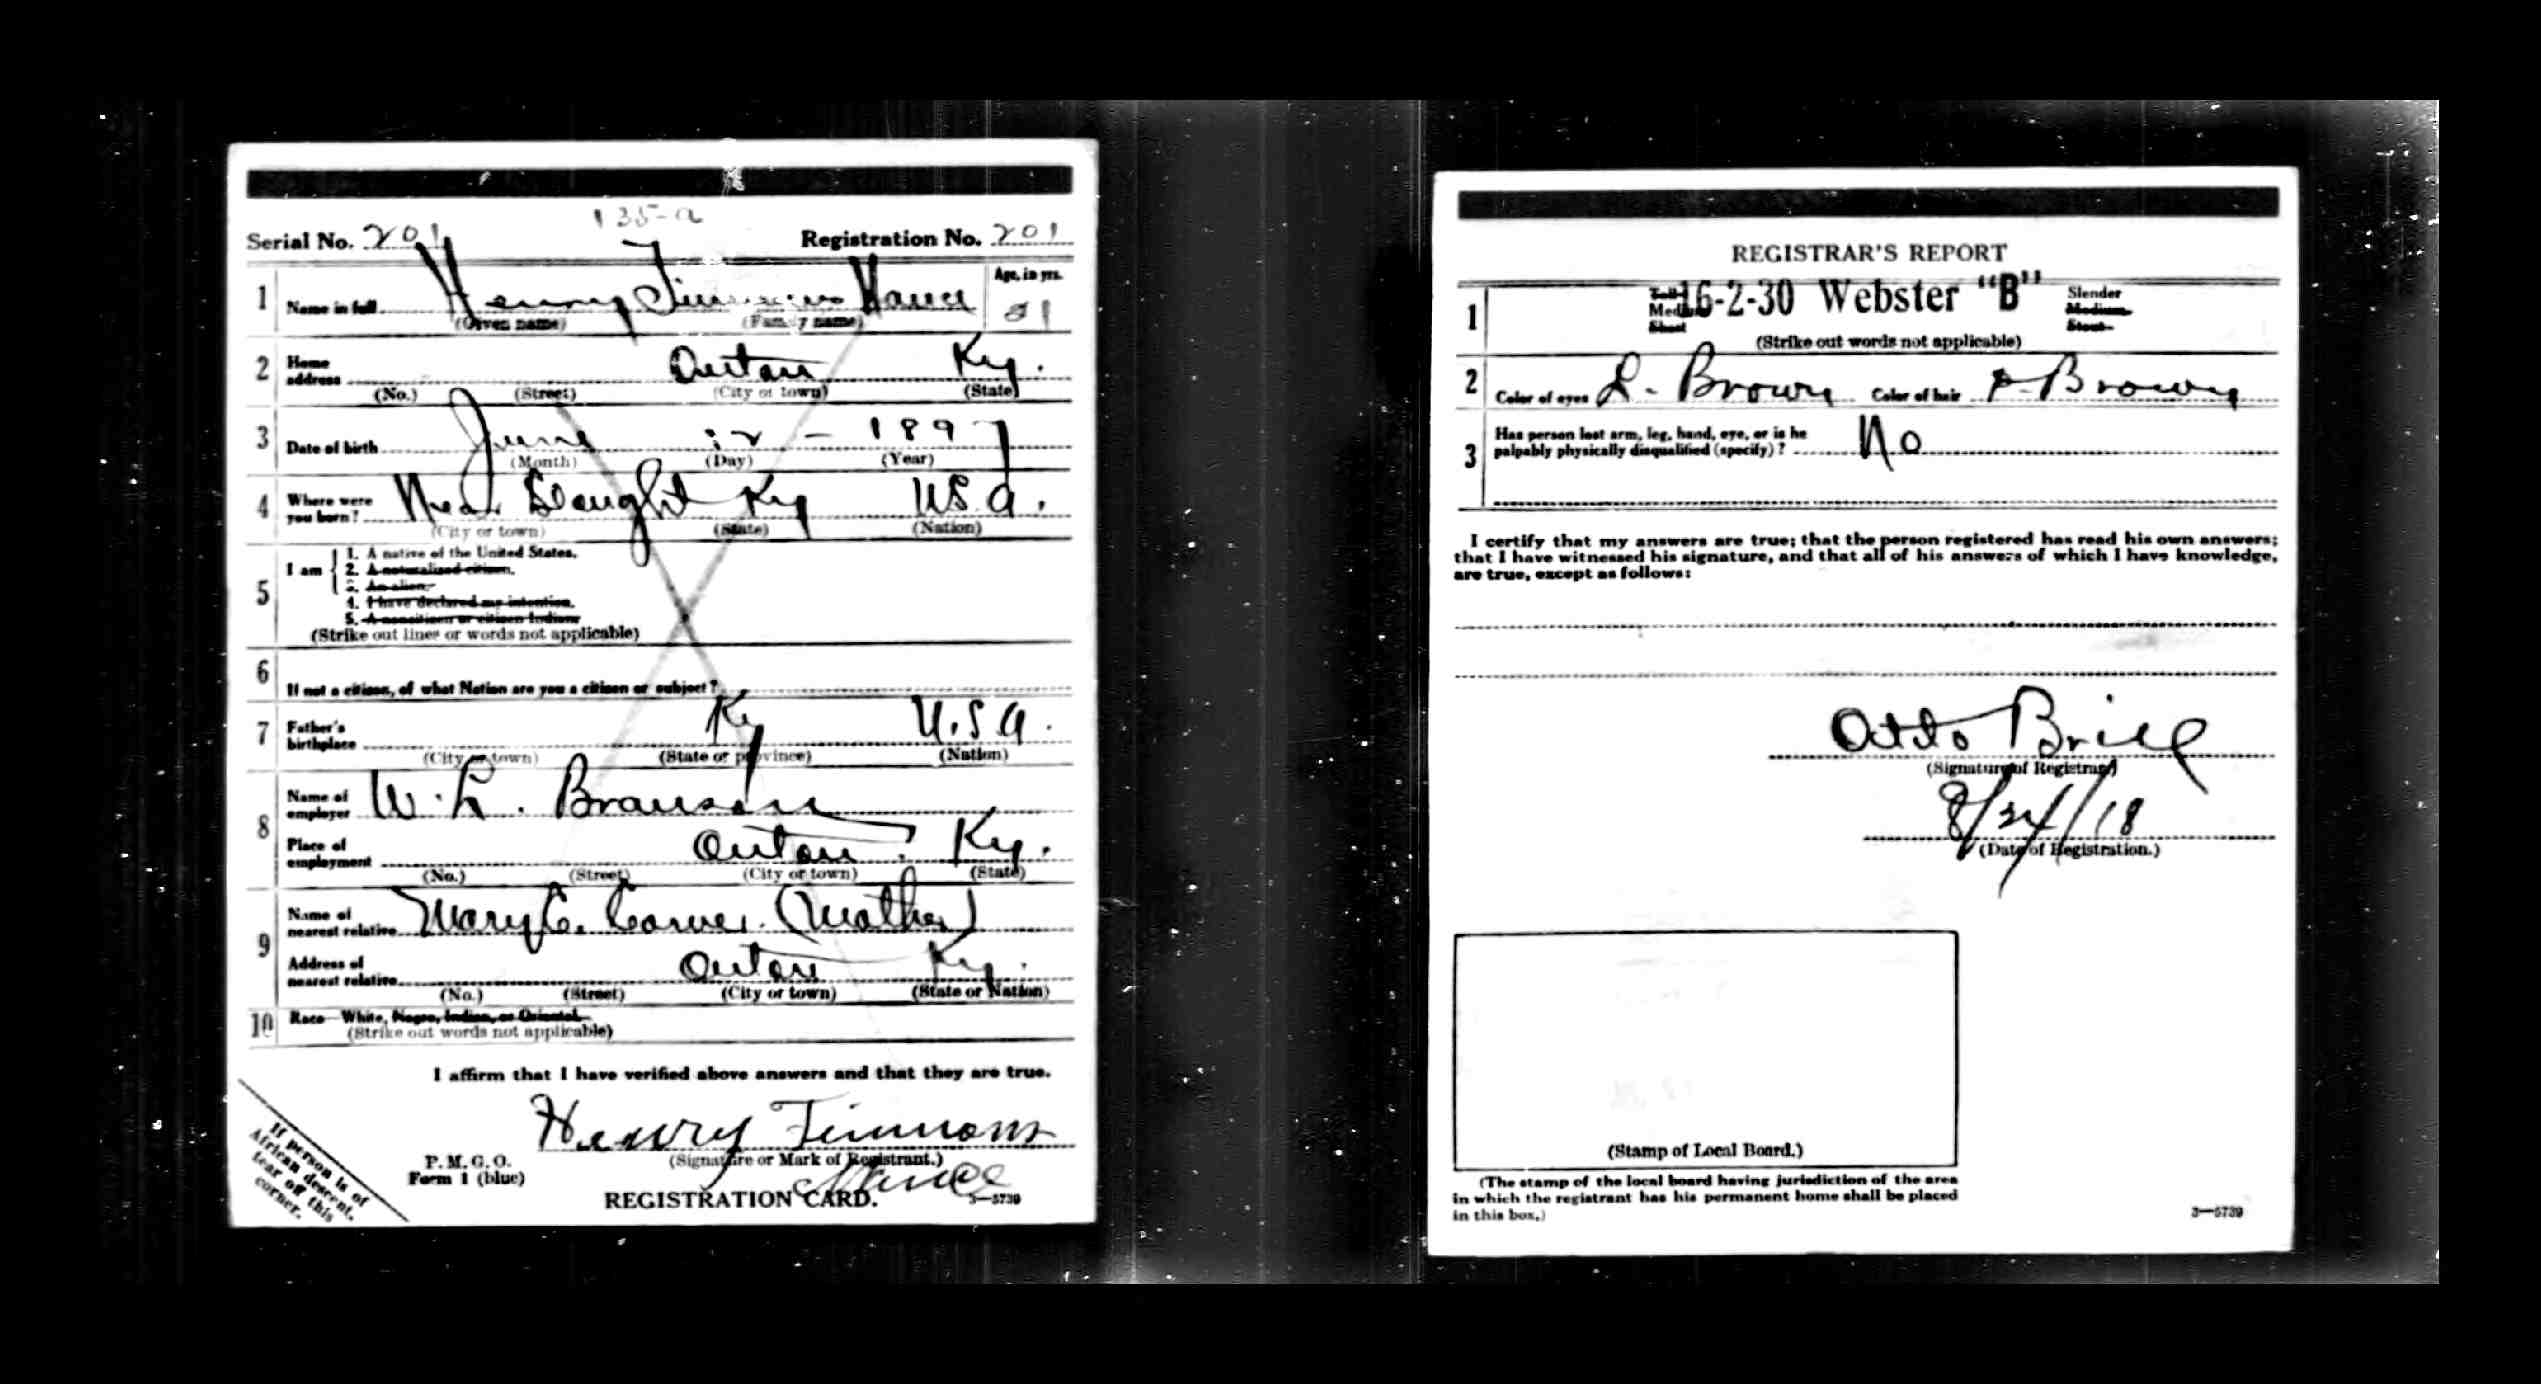 135-a
Serial No. 201 Registration No. 201
1 Name in full Henry Timmons Hance Age, in yrs.
(Given name) (Family name) 21
2 Home address Ky.
(No.) (Street) (City or town) (State)
3 Date of birth June 12 - 1897
(Month) (Day) (Year)
4 Where were you born? Near Slaught Ky U.S.A.
(City or town) (State) (Nation)
5 I am
1. A native of the United States.
2. A naturalized citizen.
3. An alien.
4. I have declared my intention.
5. A noncitizen or citizen Indian.
(Strike out lines or words not applicable)
6 If not a citizen, of what Nation are you a citizen or subject?
7 Father's birthplace Ky U.S.A.
(City or town) (State or province) (Nation)
8 Name of employer W. L. Branson
Place of employment Ky.
(No.) (Street) (City or town) (State)
9 Name of nearest relative Mary E. (Mother)
Address of nearest relative Ky.
(No.) (Street) (City or town) (State or Nation)
10 Race—White, Negro, Indian, or Oriental.
(Strike out words not applicable)
I affirm that I have verified above answers and that they are true.
Henry Timmons
(Signature or Mark of Registrant.)
Hance
P. M. G. O.
Form 1 (blue)
REGISTRATION CARD. 3—5739
If person is of
African descent,
tear off this
corner.
REGISTRAR'S REPORT
1 Tall Medium Short 16-2-30 Webster "B" Slender Medium Stout
(Strike out words not applicable)
2 Color of eyes L. Brown Color of hair Brown
3 Has person lost arm, leg, hand, eye, or is he
palpably physically disqualified (specify)? No
I certify that my answers are true; that the person registered has read his own answers;
that I have witnessed his signature, and that all of his answers of which I have knowledge,
are true, except as follows:
Otto Brill
(Signature of Registrar)
8/24/18
(Date of Registration.)
(Stamp of Local Board.)
(The stamp of the local board having jurisdiction of the area
in which the registrant has his permanent home shall be placed
in this box.)
3—5739